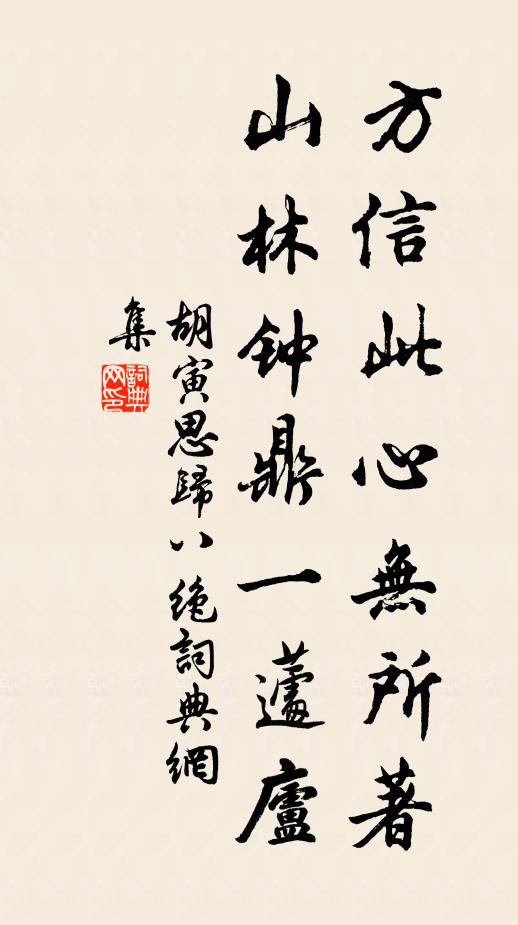 方信此心無所著
山林钟鼎一蘧廬
胡寅思歸八绝詞典網
集
詞典網印